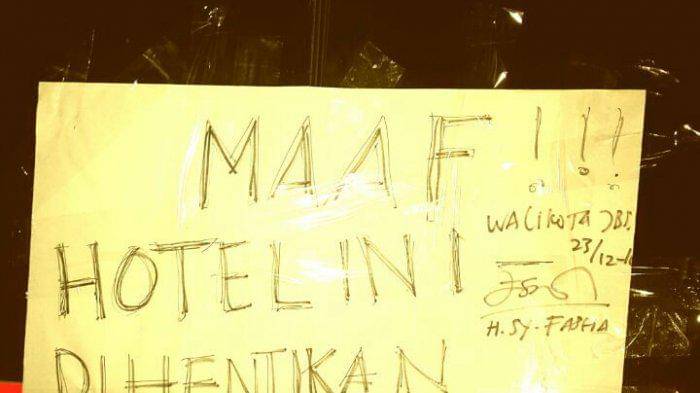 MAAF !!!
HOTEL INI
DIHENTIKAN
WALIKOTA JBI.
23/12-
H. SY. FASHA